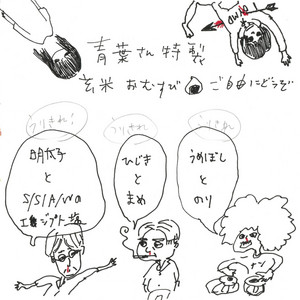 青葉さん特製
玄米 おむすび ご自由にどうぞ
うりきれ!
明太子
と
S/S/A/Wの
エジプト塩
うりきれ
ひじき
と
まめ
うりきれ
うめぼし
と
のり